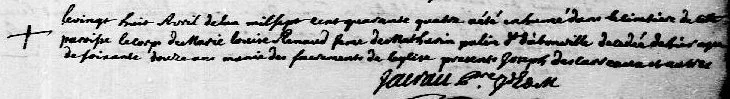 le vingt huit Avril de lan mil sept cent quarante quatre a été enhumé dans le cimtiere de cette
parroisse le corps de Marie Louise Renaud feme de Mathurin palin dt dabonville decedée dehier agée
de soixante douze ans munie des sacrements de leglise presents Joseph des carreaux et autres